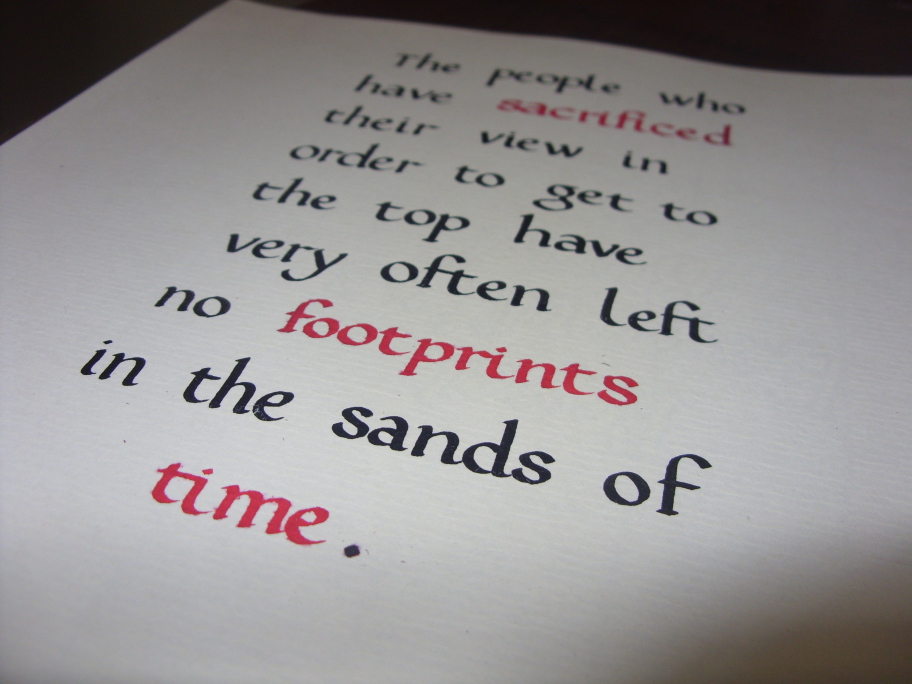 The people who
have sacrificed
their view in
order to get to
the top have
very often left
no footprints
in the sands of
time.